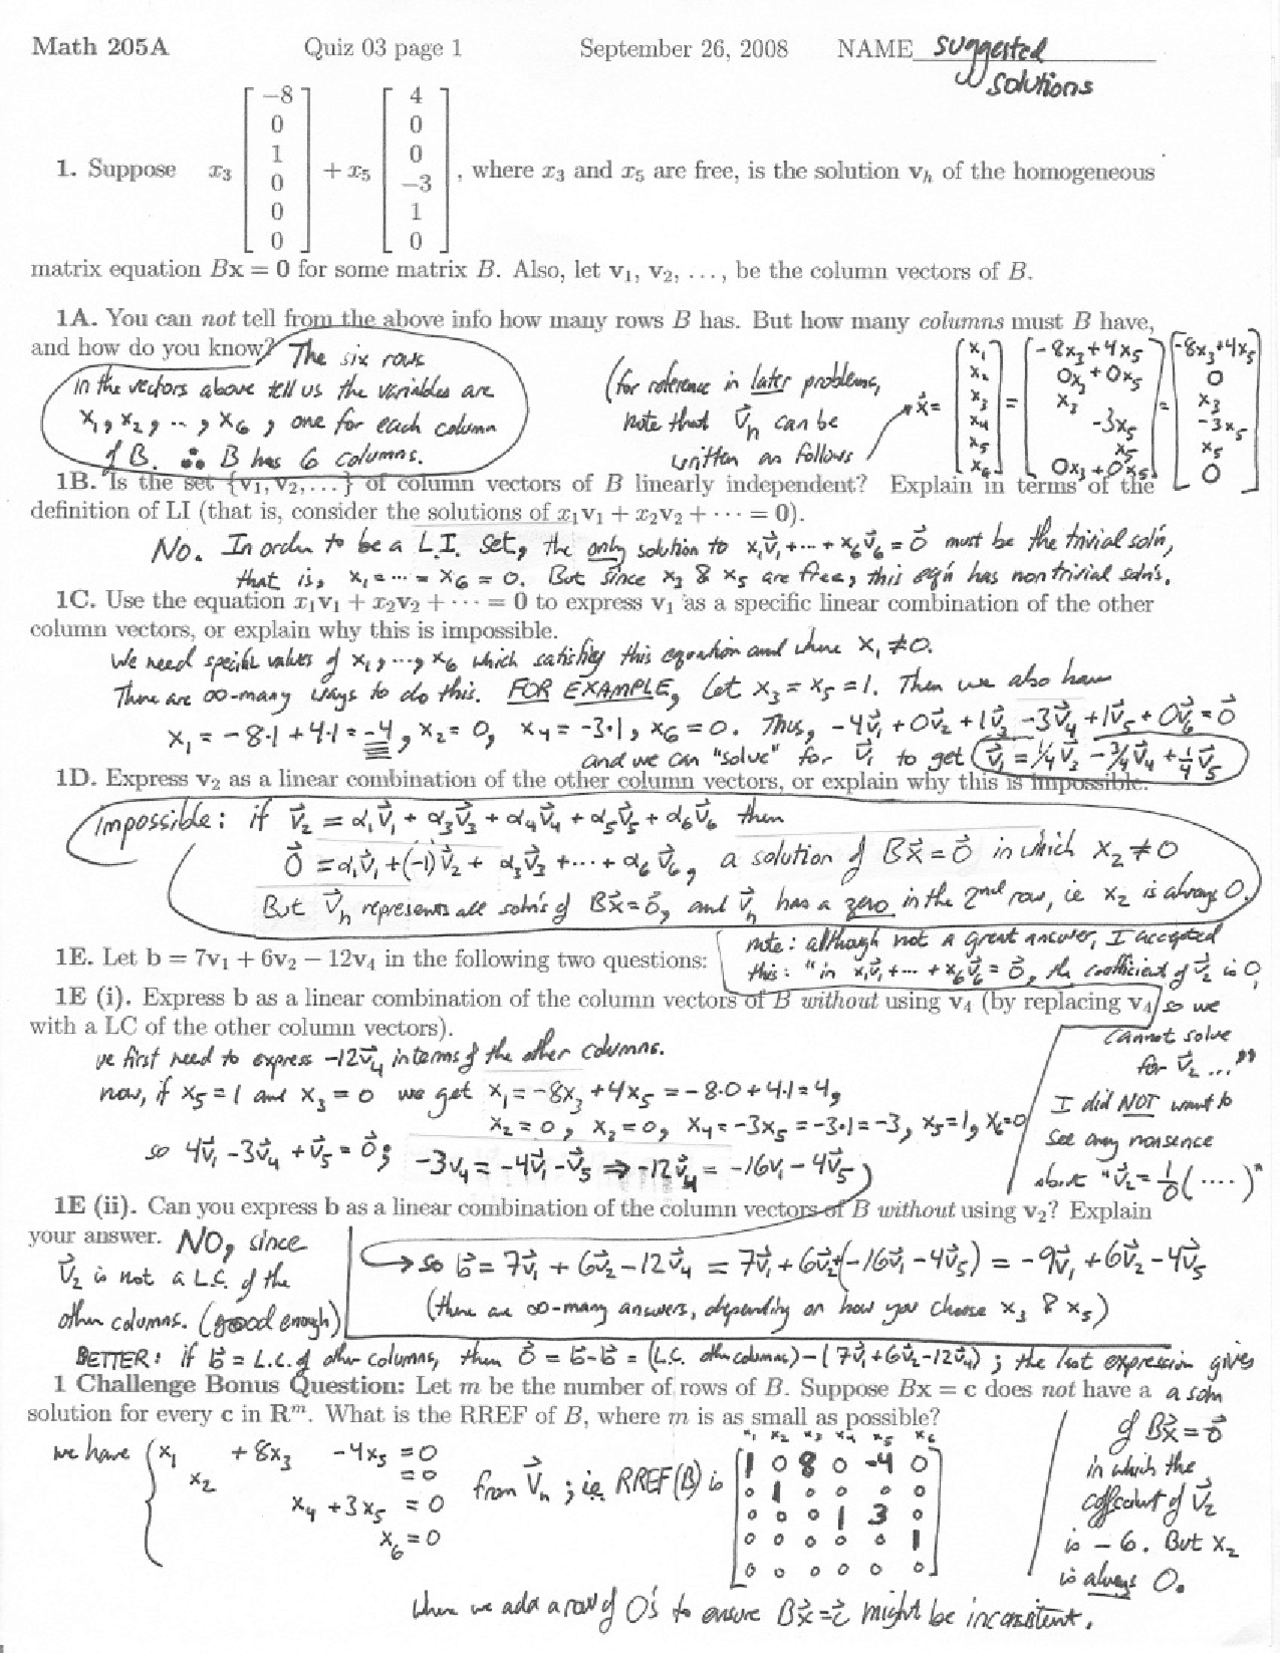 Math 205A Quiz 03 page 1 September 26, 2008 NAME suggested
solutions
1. Suppose x₃ [−8 0 1 0 0 0] + x₅ [4 0 0 −3 1 0], where x₃ and x₅ are free, is the solution vₕ of the homogeneous
matrix equation Bx = 0 for some matrix B. Also, let v₁, v₂, ..., be the column vectors of B.
1A. You can not tell from the above info how many rows B has. But how many columns must B have,
and how do you know? The six rows
in the vectors above tell us the variables are
x₁, x₂, .., x₆, one for each column
of B. ∴ B has 6 columns.
(for reference in later problems,
note that v⃗ₕ can be
written as follows
x⃗ = [x₁ x₂ x₃ x₄ x₅ x₆] = [−8x₃+4x₅ 0x₃+0x₅ x₃ −3x₅ x₅ 0x₃+0x₅] = [−8x₃+4x₅ 0 x₃ −3x₅ x₅ 0]
1B. Is the set {v₁, v₂, ...} of column vectors of B linearly independent? Explain in terms of the
definition of LI (that is, consider the solutions of x₁v₁ + x₂v₂ + ··· = 0).
No. In order to be a L.I. set, the only solution to x₁v⃗₁+···+x₆v⃗₆ = 0⃗ must be the trivial sol'n,
that is, x₁=···=x₆=0. But since x₃ & x₅ are free, this eq'n has nontrivial soln's.
1C. Use the equation x₁v₁ + x₂v₂ + ··· = 0 to express v₁ as a specific linear combination of the other
column vectors, or explain why this is impossible.
We need specific values of x₁, ..., x₆ which satisfies this equation and where x₁ ≠ 0.
There are ∞-many ways to do this. FOR EXAMPLE, Let x₃ = x₅ = 1. Then we also have
x₁ = −8·1+4·1 = −4, x₂ = 0, x₄ = −3·1, x₆ = 0. Thus, −4v⃗₁ + 0v⃗₂ + 1v⃗₃ −3v⃗₄ + 1v⃗₅ + 0v⃗₆ = 0⃗
and we can "solve" for v⃗₁ to get v⃗₁ = ¼v⃗₃ − ¾v⃗₄ + ¼v⃗₅
1D. Express v₂ as a linear combination of the other column vectors, or explain why this is impossible.
Impossible: if v⃗₂ = α₁v⃗₁ + α₃v⃗₃ + α₄v⃗₄ + α₅v⃗₅ + α₆v⃗₆ then
0⃗ = α₁v⃗₁ + (−1)v⃗₂ + α₃v⃗₃ + ··· + α₆v⃗₆, a solution of Bx⃗ = 0⃗ in which x₂ ≠ 0
But v⃗ₕ represents all soln's of Bx⃗=0⃗, and v⃗ₕ has a zero in the 2nd row, ie x₂ is always 0.
1E. Let b = 7v₁ + 6v₂ − 12v₄ in the following two questions:
note: although not a great answer, I accepted
this: "in x₁v⃗₁+···+x₆v⃗₆ = 0⃗, the coefficient of v⃗₂ is 0,
so we
cannot solve
for v⃗₂ ..."
I did NOT want to
see any nonsence
about "v⃗₂ = 1/0(....)"
1E (i). Express b as a linear combination of the column vectors of B without using v₄ (by replacing v₄
with a LC of the other column vectors).
we first need to express −12v⃗₄ in terms of the other columns.
now, if x₅ = 1 and x₃ = 0 we get x₁ = −8x₃ + 4x₅ = −8·0+4·1 = 4,
x₂ = 0, x₂ = 0, x₄ = −3x₅ = −3·1 = −3, x₅ = 1, x₆ = 0
so 4v⃗₁ − 3v⃗₄ + v⃗₅ = 0⃗; −3v₄ = −4v⃗₁ − v⃗₅ ⇒ −12v⃗₄ = −16v₁ − 4v⃗₅
so b⃗ = 7v⃗₁ + 6v⃗₂ − 12v⃗₄ = 7v⃗₁ + 6v⃗₂ + (−16v⃗₁ − 4v⃗₅) = −9v⃗₁ + 6v⃗₂ − 4v⃗₅
(there are ∞-many answers, depending on how you choose x₃ & x₅)
1E (ii). Can you express b as a linear combination of the column vectors of B without using v₂? Explain
your answer. NO, since
v⃗₂ is not a L.C. of the
other columns. (good enough)
BETTER: if b⃗ = L.C. of other columns, then 0⃗ = b⃗ − b⃗ = (L.C. other columns) − (7v⃗₁+6v⃗₂−12v⃗₄); the last expression gives
a soln
of Bx⃗ = 0⃗
in which the
coefficient of v⃗₂
is −6. But x₂
is always 0.
1 Challenge Bonus Question: Let m be the number of rows of B. Suppose Bx = c does not have a
solution for every c in Rᵐ. What is the RREF of B, where m is as small as possible?
we have { x₁ + 8x₃ − 4x₅ = 0
x₂ = 0
x₄ + 3x₅ = 0
x₆ = 0
from v⃗ₕ; i.e. RREF(B) is
x₁ x₂ x₃ x₄ x₅ x₆
1 0 8 0 −4 0
0 1 0 0 0 0
0 0 0 1 3 0
0 0 0 0 0 1
0 0 0 0 0 0
where we add a row of 0's to ensure Bx⃗=c⃗ might be inconsistent.